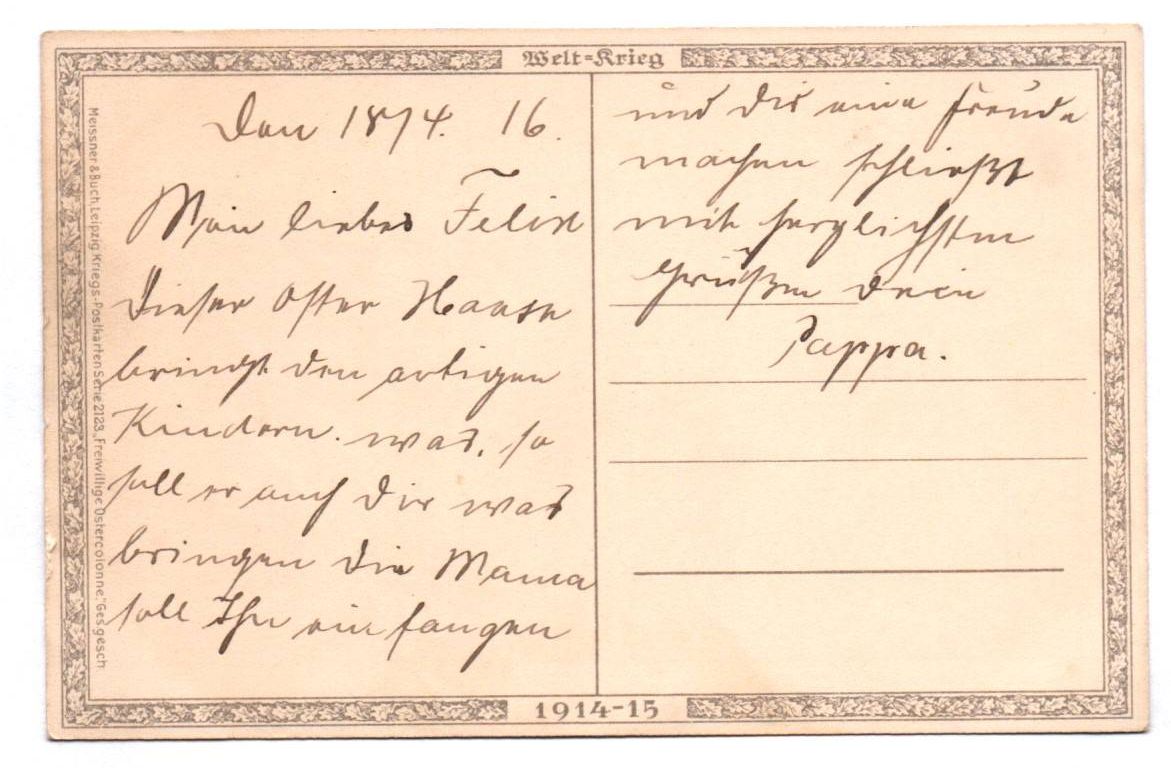 Welt-Krieg
Den 18/4. 16.
Mein liebes Felix
Dieser Oster Haase
bringt den artigen
Kindern was, so
soll er auch Dir was
bringen die Mama
soll Ihn ein fangen
und dir eine Freude
machen schließt
mit herzlichsten
Grüßen Dein
Pappa.
1914-15
Meissner & Buch, Leipzig Kriegs-Postkarten Serie 2123 „Freiwillige Ostercolonne," Ges. gesch